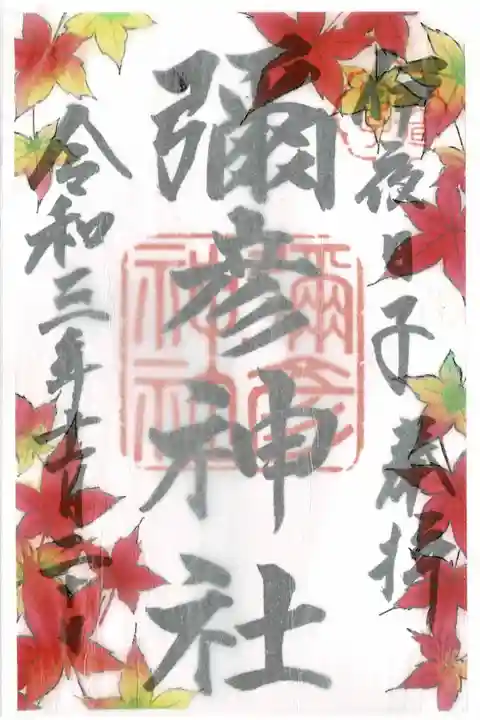 伊夜日子 奉拝
彌彦神社
彌彦神社
令和三年十一月二十一日